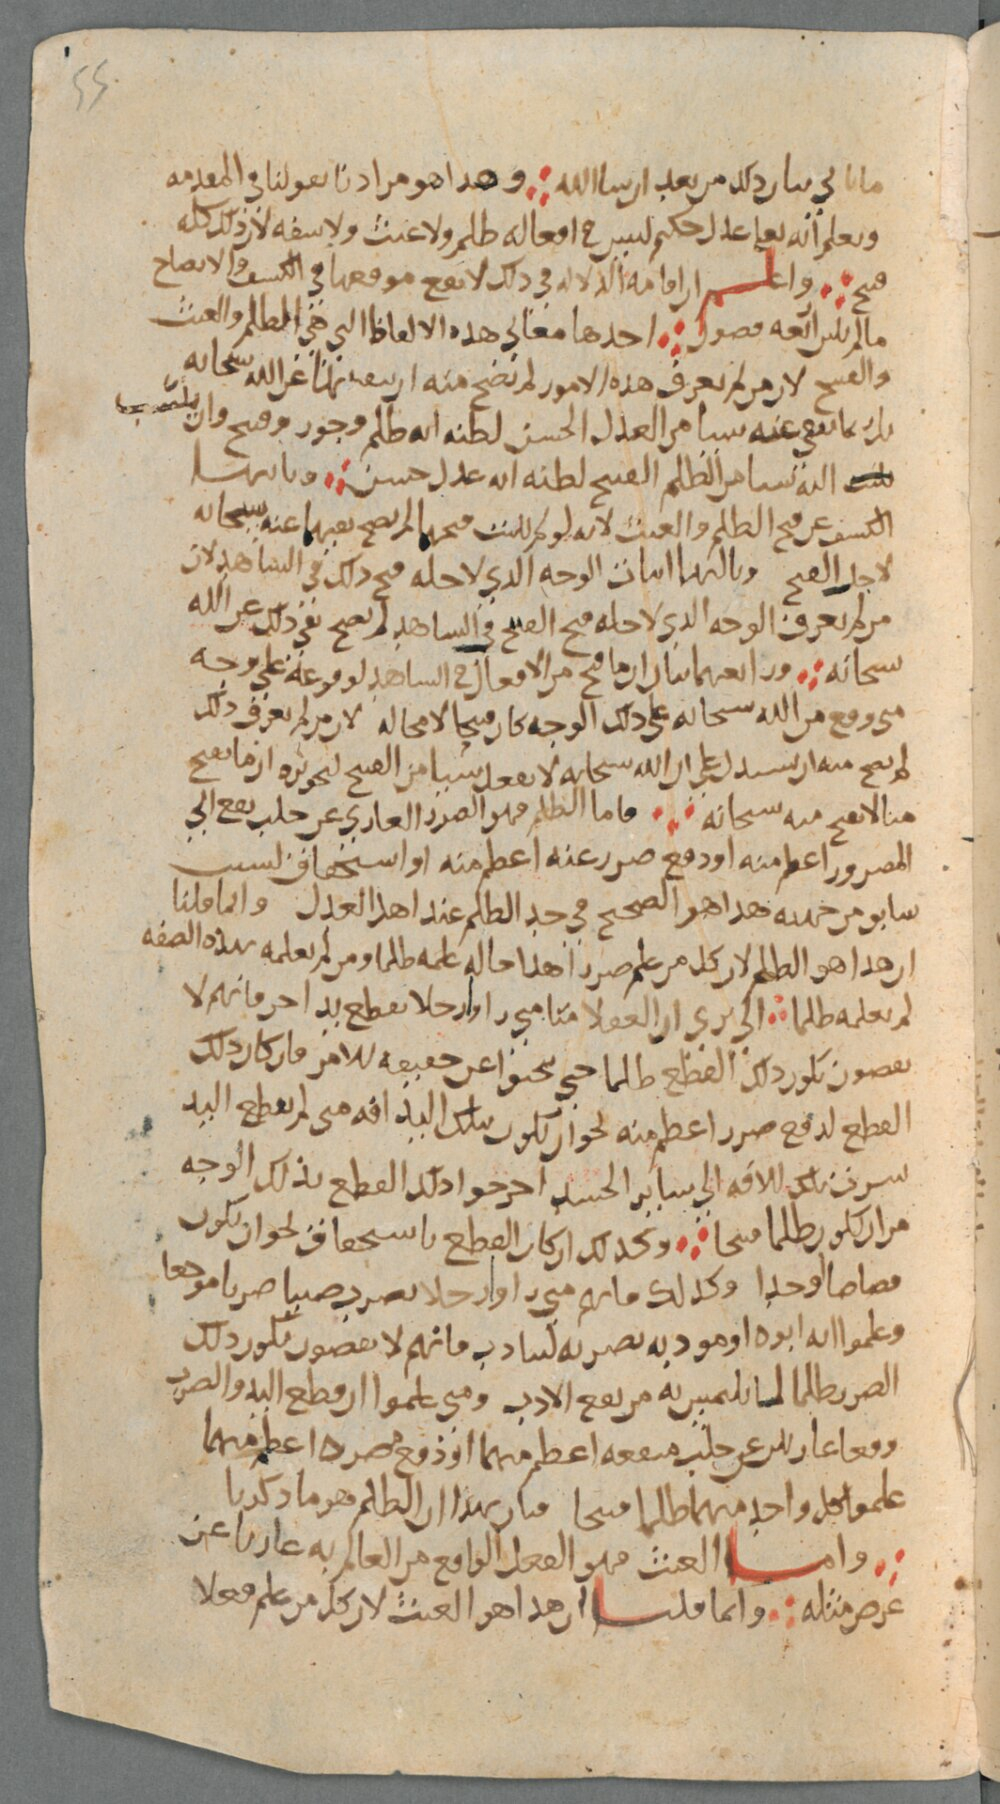 55
ما ياتي بيان ذلك من بعد ان شا الله وهذا هو مرادنا بقولنا في المقدمه
ونعلم أنه تعالى عدل حكيم ليس في افعاله ظلم ولا عبث ولا سفه لان ذلك كله
قبيح واعلم ان اقامه الدلاله في ذلك لا تقع موقعها في الكشف والايضاح
مالم نبين اربعه فصول احدها معاني هذه الالفاظ التي هي الظلم والعبث
والقبيح لان من لم يعرف هذه الامور لم تصح منه ان ينفيها عن الله سبحانه
بل ربما نفى عنه شيا من العدل الحسن لظنه انه ظلم وجور وقبيح وان يثبت
اليه شيا من الظلم القبيح لظنه انه عدل حسن وثانيها
الكشف عن قبح الظلم والعبث لانه لو لم يثبت قبحهما لم يصح نفيهما عنه سبحانه
لاجل القبح وثالثها اثبات الوجه الذي لاجله قبح ذلك في الشاهد لان
من لم يعرف الوجه الذي لاجله قبح القبيح في الشاهد لم يصح نفي ذلك عن الله
سبحانه ورابعها بيان ان ما قبح من الافعال في الشاهد لوقوعه على وجه
متى وقع من الله سبحانه على ذلك الوجه كان قبيحا لا محاله لان من لم يعرف ذلك
لم يصح منه ان يستدل على ان الله سبحانه لا يفعل شيا من القبيح لتجويزه ان ما يقبح
منا لا يقبح منه سبحانه فاما الظلم فهو الضرر العاري عن جلب نفع الى
المضرور اعظم منه او دفع ضرر عنه اعظم منه او استحقاق لسبب
سابق من جهته هذا هو الصحيح في حد الظلم عند اهل العدل وانما قلنا
ان هذا هو الظلم لان كل من علم ضررا هذا حاله علمه ظلما ومن لم يعلمه بهذه الصفه
لم يعلمه ظلما الا ترى ان العقلا منا متى راوا رجلا يقطع يد اخر فانهم لا
يقضون بكون ذلك القطع ظلما حتى يبحثوا عن حقيقه الامر فان كان ذلك
القطع لدفع ضرر اعظم منه نحو ان تكون بتلك اليد افه متى لم تقطع اليد
سرت تلك الافه الى ساير الجسد اخرجوا ذلك القطع بذلك الوجه
من ان يكون ظلما قبيحا وكذلك ان كان القطع باستحقاق نحو ان يكون
قصاصا او حدا وكذلك فانهم متى راوا رجلا يضرب صبيا ضربا موجعا
وعلموا انه ابوه او مودبه يضربه ليتادب فانهم لا يقضون بكون ذلك
الضرب ظلما لما يلتمس به من نفع الادب ومتى علموا ان قطع اليد والضرب
وقعا عاريين عن جلب منفعه اعظم منهما او دفع مضره اعظم منهما
علموا كل واحد منهما ظلما قبيحا فبان بهذا ان الظلم هو ما ذكرنا
واما العبث فهو الفعل الواقع من العالم به عاريا عن
غرض مثله وانما قلنا ان هذا هو العبث لان كل من علم فعلا